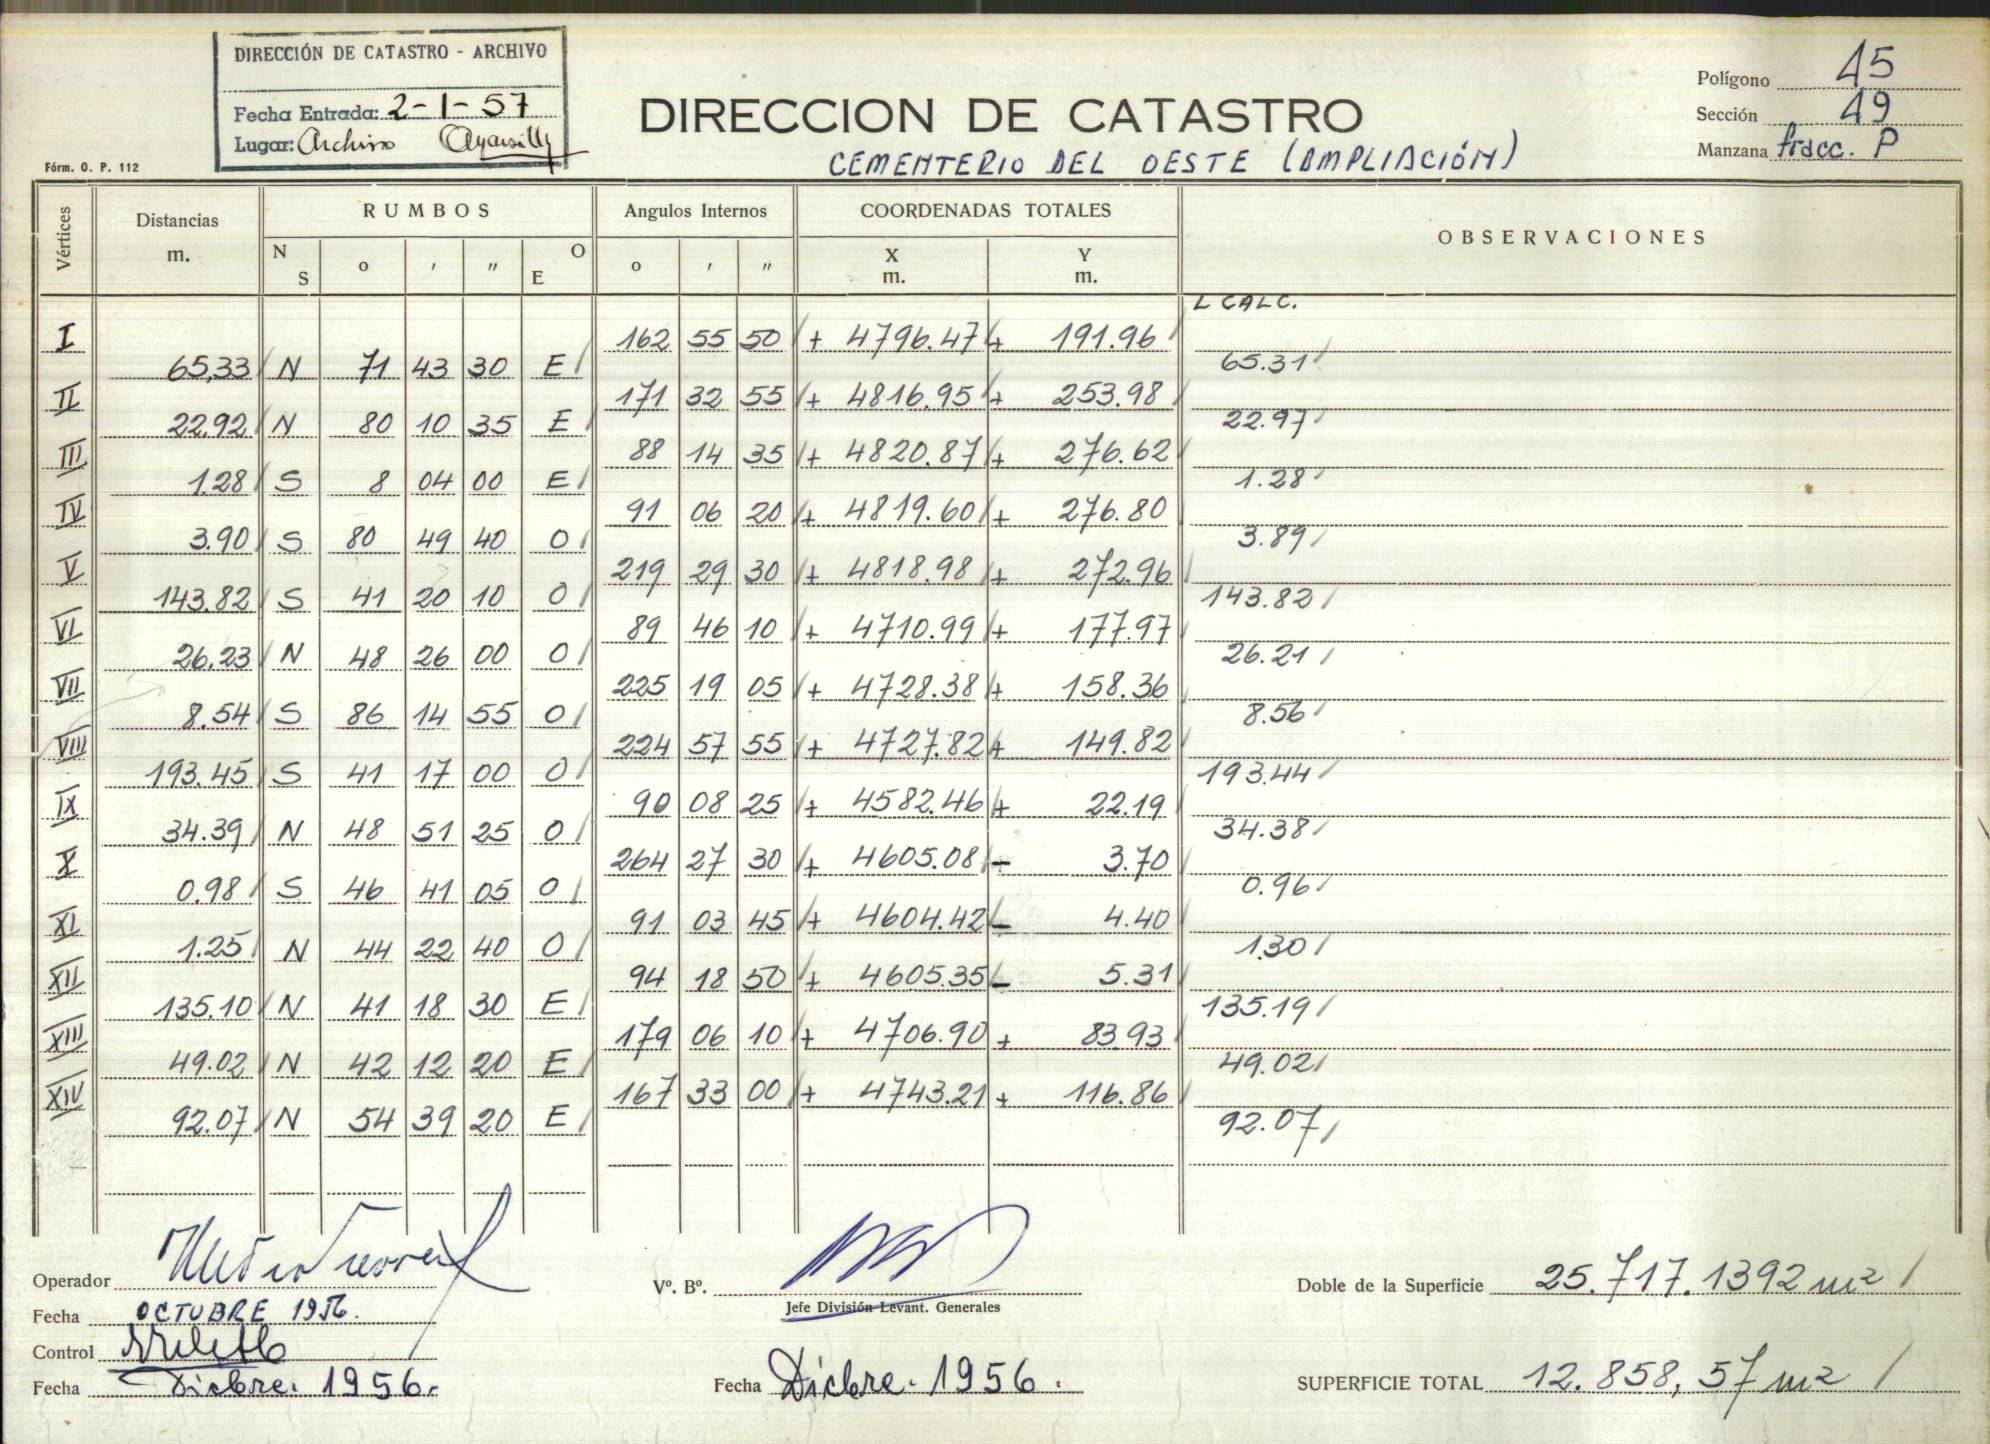 DIRECCIÓN DE CATASTRO - ARCHIVO
Fecha Entrada: 2-1-57
Lugar: Archivo
Fórm. O. P. 112
DIRECCION DE CATASTRO
CEMENTERIO DEL OESTE (AMPLIACIÓN)
Polígono 45
Sección 49
Manzana fracc. P
Vértices Distancias m. RUMBOS Angulos Internos COORDENADAS TOTALES OBSERVACIONES
N S o ' " O E o ' " X m. Y m.
L CALC.
I 162 55 50 + 4796.47 + 191.96
65,33 N 71 43 30 E 65.31
II 171 32 55 + 4816.95 + 253.98
22.92 N 80 10 35 E 22.97
III 88 14 35 + 4820.87 + 276.62
1.28 S 8 04 00 E 1.28
IV 91 06 20 + 4819.60 + 276.80
3.90 S 80 49 40 O 3.89
V 219 29 30 + 4818.98 + 272.96
143.82 S 41 20 10 O 143.82
VI 89 46 10 + 4710.99 + 177.97
26.23 N 48 26 00 O 26.21
VII 225 19 05 + 4728.38 + 158.36
8.54 S 86 14 55 O 8.56
VIII 224 57 55 + 4727.82 + 149.82
193.45 S 41 17 00 O 193.44
IX 90 08 25 + 4582.46 + 22.19
34.39 N 48 51 25 O 34.38
X 264 27 30 + 4605.08 - 3.70
0.98 S 46 41 05 O 0.96
XI 91 03 45 + 4604.42 - 4.40
1.25 N 44 22 40 O 1.30
XII 94 18 50 + 4605.35 - 5.31
135.10 N 41 18 30 E 135.19
XIII 179 06 10 + 4706.90 + 83.93
49.02 N 42 12 20 E 49.02
XIV 167 33 00 + 4743.21 + 116.86
92.07 N 54 39 20 E 92.07
Operador
Fecha OCTUBRE 1956.
Control
Fecha Dicbre. 1956.
Vº. Bº.
Jefe División Levant. Generales
Fecha Dicbre. 1956.
Doble de la Superficie 25.717.1392 m²
SUPERFICIE TOTAL 12.858,57 m²